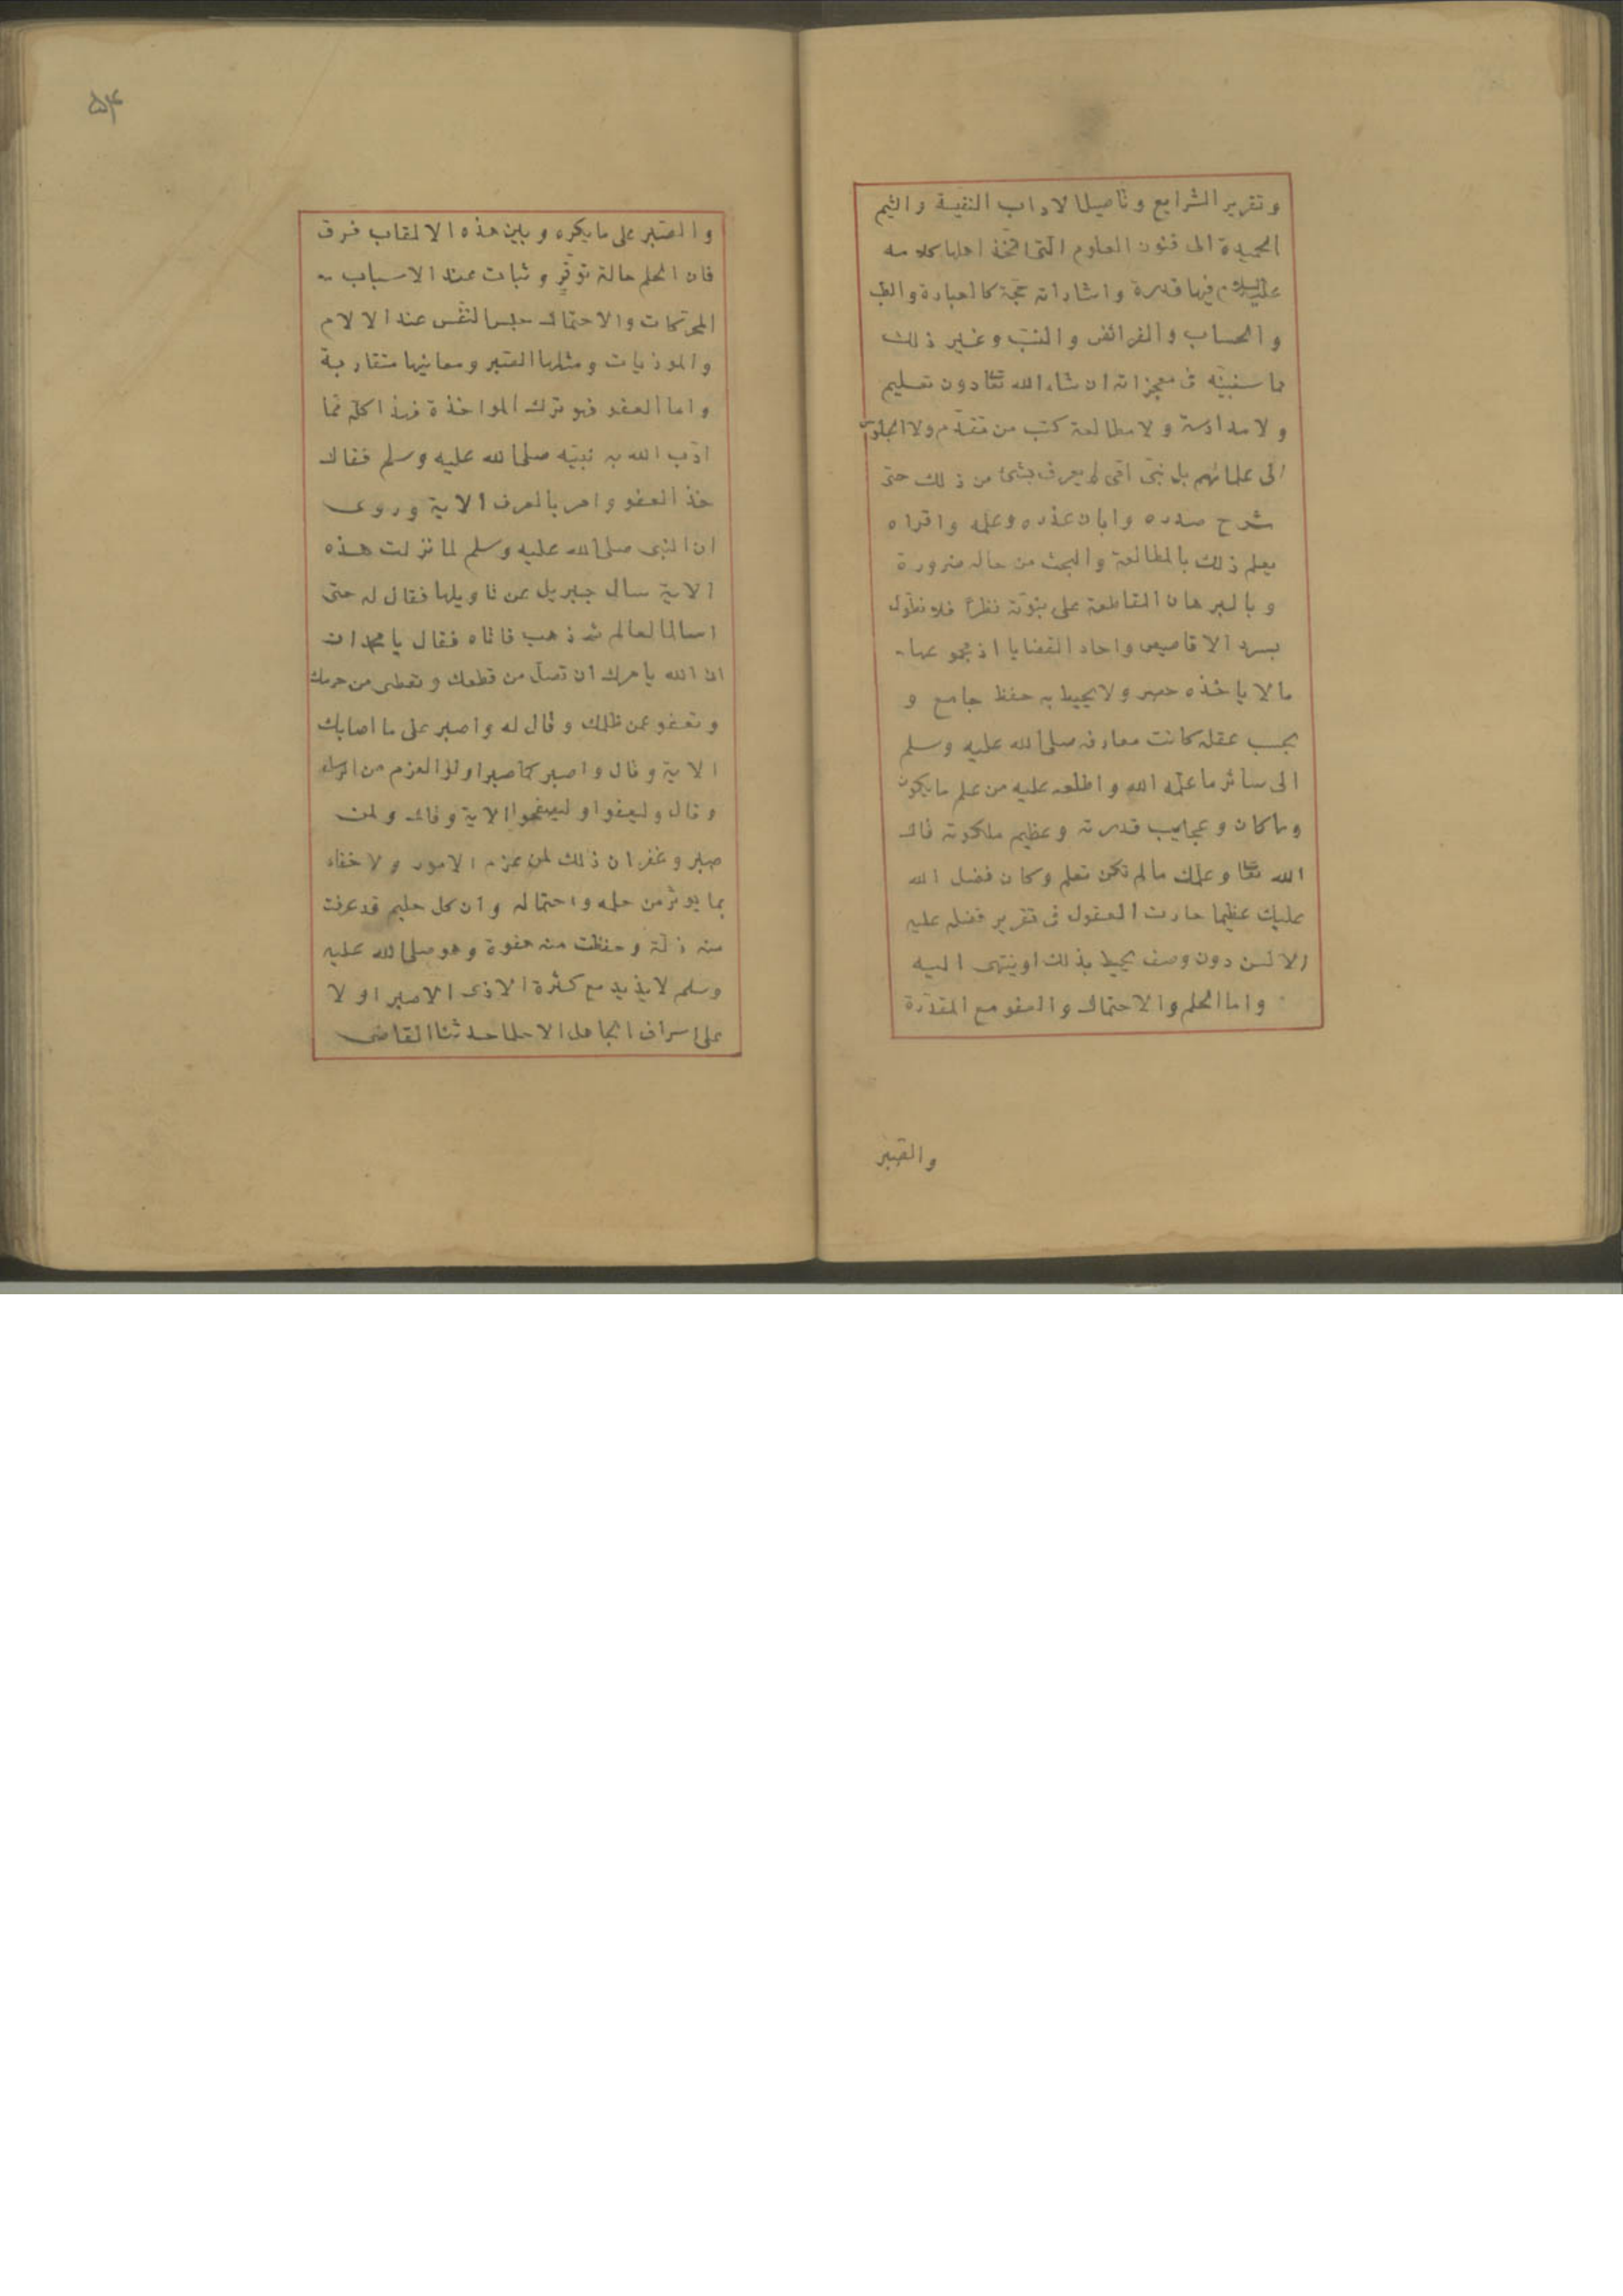 وتقرير الشرايع وتاصيل الاداب النفيسة والشيم
الحميدة الى فنون العلوم التى اتخذ اهلها كلامه
عليه السلام فيها قدرة واشاراته حجة كالعبارة والطب
والحساب والفرائض والنسب وغير ذلك
مما سنبينه فى معجزاته ان شاء الله تعا دون تعليم
ولا مدارسة ولا مطالعة كتب من تقدم ولا الجلوس
الى علمائهم بل نبى امى لم يعرف بشئ من ذلك حتى
شرح صدره وابان عذره وعلمه واقراه
يعلم ذلك بالمطالعة والبحث من حاله ضرورة
وبالبرهان القاطعة على نبوته نظرا فلا نطول
بسرد الاقاصيص واحاد القضايا اذ مجموعها
مالا ياخذه حصر ولا يحيط به حفظ جامع و
بحسب عقله كانت معارفه صلى الله عليه وسلم
الى سائر ما علمه الله واطلعه عليه من علم ما يكون
وما كان وعجايب قدرته وعظيم ملكوته قال
الله تعا وعلمك مالم تكن تعلم وكان فضل الله
عليك عظيما حارت العقول فى تقرير فضله عليه
الالسن دون وصف يحيط بذلك او ينتهى اليه
واما الحلم والاحتمال والعفو مع المقدرة
والصبر
۵۴
والصبر على ما يكره وبين هذه الالقاب فرق
فان الحلم حالة توقر وثبات عند الاسباب
المحركات والاحتمال حبس النفس عند الالام
والموذيات ومثلها الصبر ومعانيها متقاربة
واما العفو فهو ترك المواخذة وهذا كله مما
ادب الله به نبيه صلى الله عليه وسلم فقال
خذ العفو وامر بالعرف الاية وروى
ان النبى صلى الله عليه وسلم لما نزلت هذه
الاية سال جبريل عن تاويلها فقال له حتى
اسال العالم ثم ذهب فاتاه فقال يا محمد ان
ان الله يامرك ان تصل من قطعك وتعطى من حرمك
وتعفو عمن ظلمك وقال له واصبر على ما اصابك
الاية وقال واصبر كما صبر اولو العزم من الرسل
وقال وليعفوا وليصفحوا الاية وقال ولمن
صبر وغفر ان ذلك لمن عزم الامور ولا خفاء
بما يوثر من حلمه واحتماله وان كل حليم قد عرفت
منه زلة وحفظت منه هفوة وهو صلى الله عليه
وسلم لا يزيد مع كثرة الاذى الا صبرا ولا
على اسراف الجاهل الا حلما حدثنا القاضى